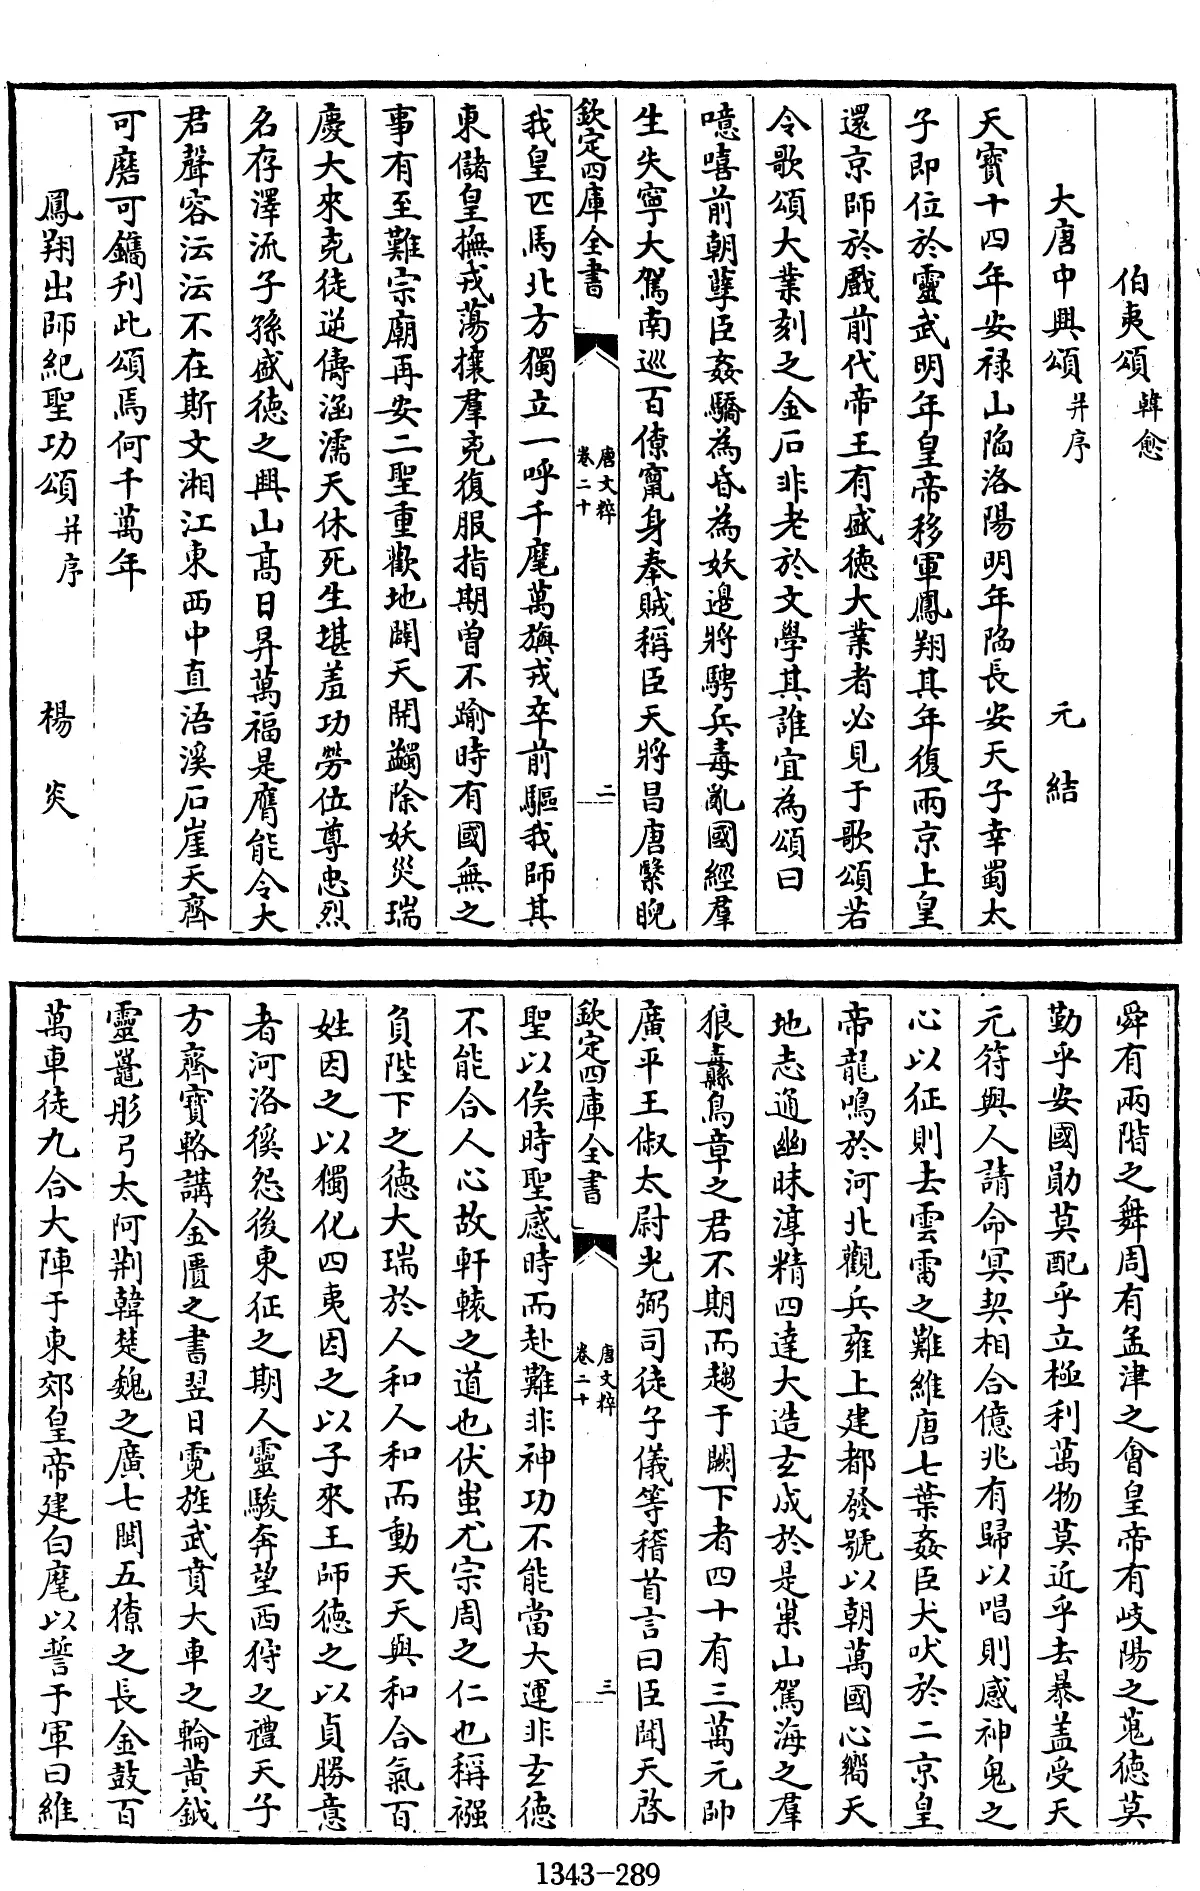 伯夷頌 韓愈
大唐中興頌 并序 元結
天寶十四年安禄山陷洛陽明年陷長安天子幸蜀太
子即位於靈武明年皇帝移軍鳳翔其年復兩京上皇
還京師於戲前代帝王有盛德大業者必見于歌頌若
令歌頌大業刻之金石非老於文學其誰宜為頌曰
噫嘻前朝孽臣姦驕為昏為妖邊將騁兵毒亂國經羣
生失寧大駕南巡百僚竄身奉賊稱臣天將昌唐繄睨
欽定四庫全書 唐文粹 卷二十 二
我皇匹馬北方獨立一呼千麾萬旟戎卒前驅我師其
東儲皇撫戎蕩攘羣兇復服指期曾不踰時有國無之
事有至難宗廟再安二聖重歡地闢天開蠲除妖災瑞
慶大來兇徒逆儔涵濡天休死生堪羞功勞位尊忠烈
名存澤流子孫盛德之興山高日昇萬福是膺能令大
君聲容沄沄不在斯文湘江東西中直浯溪石崖天齊
可磨可鐫刋此頌焉何千萬年
鳳翔出師紀聖功頌 并序 楊炎
舜有兩階之舞周有孟津之會皇帝有岐陽之蒐德莫
勤乎安國勛莫配乎立極利萬物莫近乎去暴盖受天
元符與人請命冥契相合億兆有歸以唱則感神鬼之
心以征則去雲雷之難維唐七葉姦臣犬吠於二京皇
帝龍鳴於河北觀兵雍上建都發號以朝萬國心嚮天
地志通幽昧淳精四達大造玄成於是巢山駕海之羣
狼纛鳥章之君不期而趨于闕下者四十有三萬元帥
廣平王俶太尉光弼司徒子儀等稽首言曰臣聞天啓
欽定四庫全書 唐文粹 卷二十 三
聖以俟時聖感時而赴難非神功不能當大運非玄德
不能合人心故軒轅之道也伏蚩尤宗周之仁也稱襁
負陛下之德大瑞於人和人和而動天天與和合氣百
姓因之以獨化四夷因之以子來王師德之以貞勝意
者河洛徯怨後東征之期人靈駿奔望西狩之禮天子
方齋寶輅講金匱之書翌日霓旌武賁大車之輪黄鉞
靈鼉彤弓太阿荆韓楚魏之廣七閩五獠之長金鼓百
萬車徒九合大陣于東郊皇帝建白麾以誓于軍曰維
1343-289